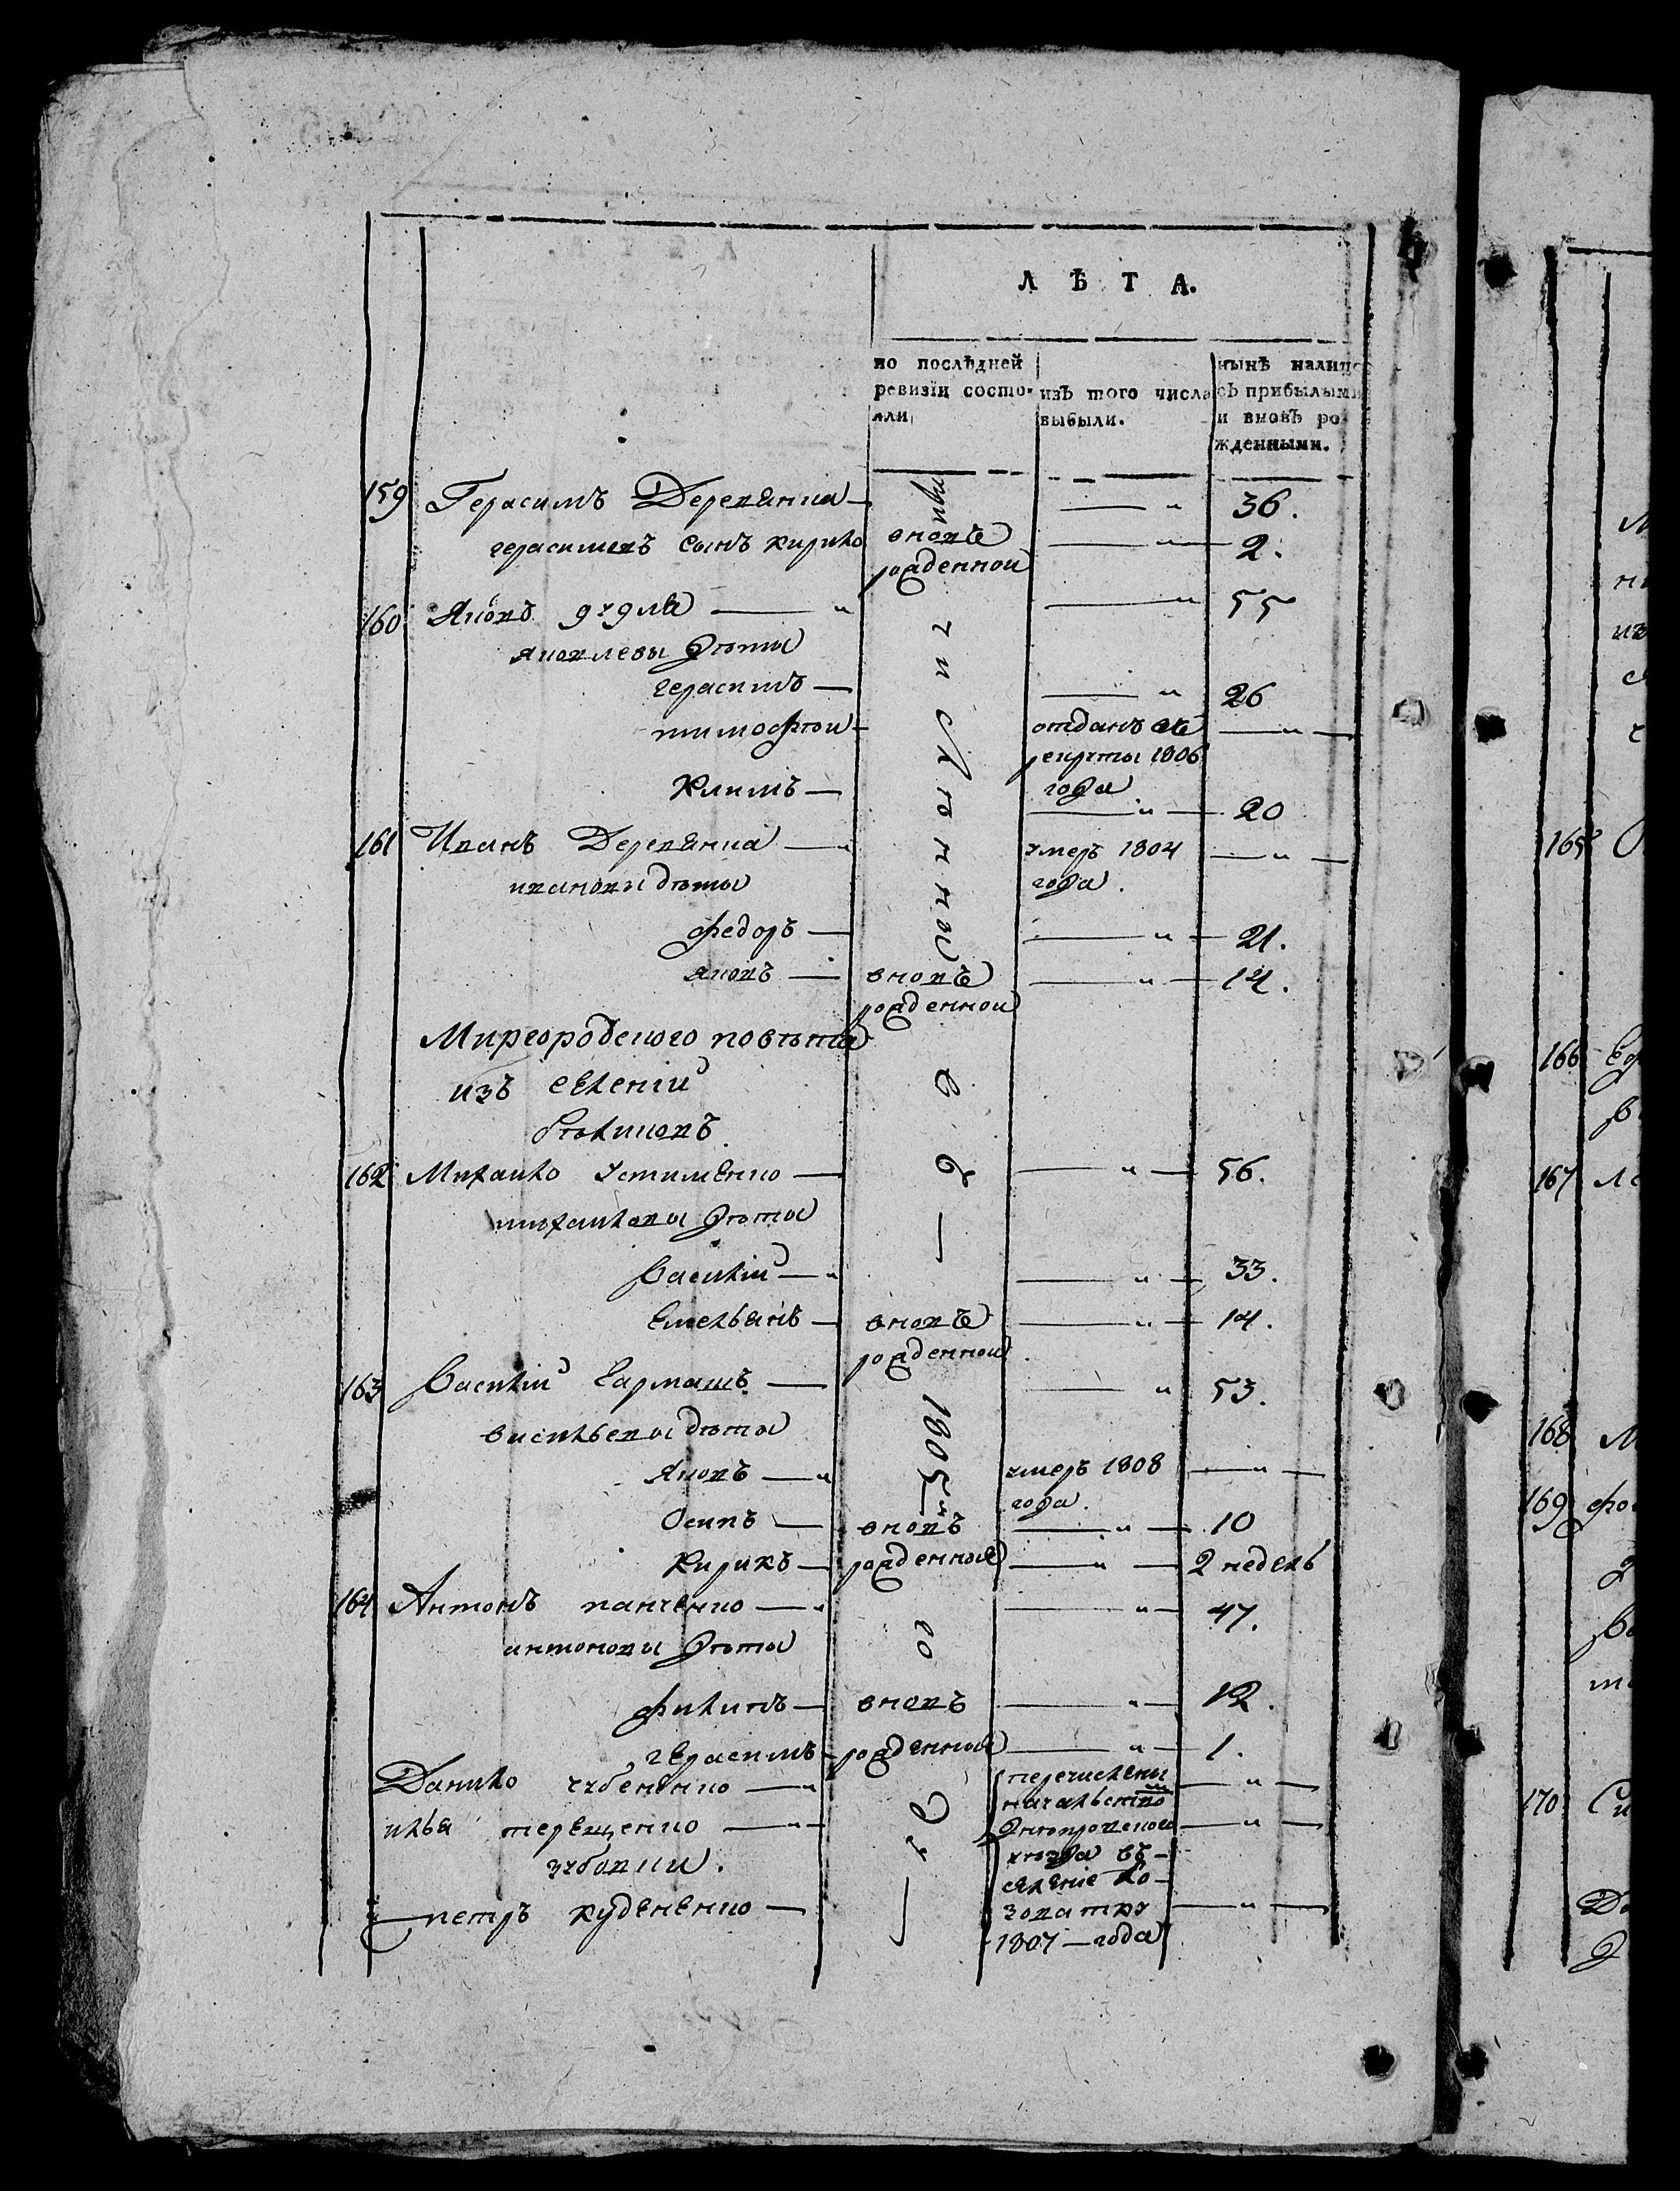 ЛѢТА.
по послѣдней
ревизїи состо-
яли
изъ того числа
выбыли.
нынѣ налицо
съ прибылыми
и вновь ро-
жденными.
159 Герасимъ Деревянка — 36.
герасимовъ сынъ кирило вновь рожденной — 2.
160 Яковъ — 55
яковлевы дѣти
герасимъ — 26
тимофѣй — отданъ въ рекруты 1806 года —
Климъ — 20
161 Иванъ Деревянка — умеръ 1804 года. —
ивановы дѣти
федоръ — 21.
яковъ — вновь рожденной — 14.
Миргородского повѣта
изъ селенїй
162 Михайло Устименко — 56.
михайловы дѣти
Василїй — 33.
Емельянъ — вновь рожденной — 14.
163 Василїй Гармашъ — 53.
васильевы дѣти
Яковъ — умеръ 1808 года. —
Осипъ — вновь — 10
Кирикъ — рожденные — 2 недель
164 Антонъ панченко — 47.
антоновы дѣти
филипъ — вновь — 12.
герасимъ — рожденные — 1.
Данило —
илья терещенко —
петръ куденко —
перечислены
уезда въ
селенїе
1807 — года
причисленной
въ
1805
году
165
166
167
168
169
170